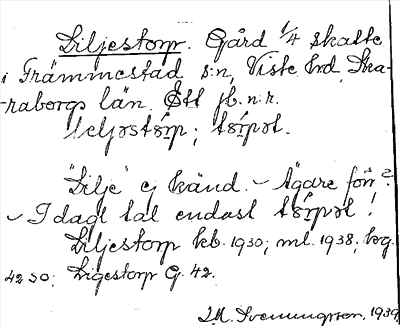 Liljestorp. Gård 1/4 skatte
i Främmestad s:n, Viste hd, Ska-
raborgs län. Ett jb.n.r.
lɩljəstórp; tórpət.
"Lilje" ej känd. – Ägare förr?
– I dagl tal endast tórpət!
Liljestorp kb. 1930; ml. 1938; kog.
4230; Ligestorp G. 42.
J.A. Svenningsson, 1939.